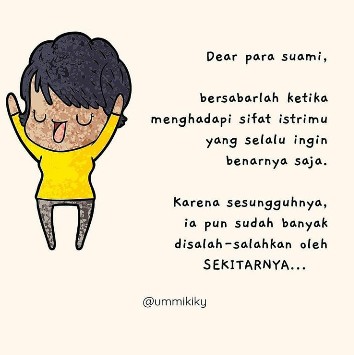 Dear para suami,
bersabarlah ketika
menghadapi sifat istrimu
yang selalu ingin
benarnya saja.
Karena sesungguhnya,
ia pun sudah banyak
disalah-salahkan oleh
SEKITARNYA...
@ummikiky